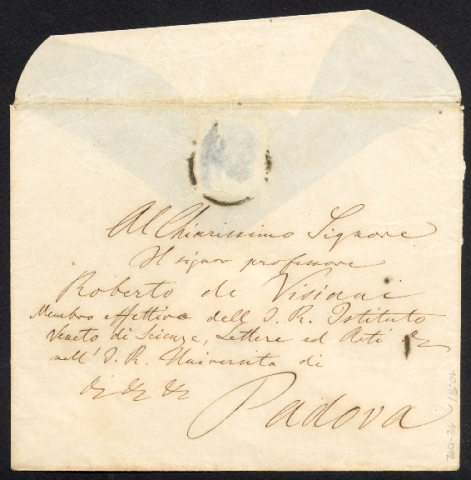 Al Chiarissimo Signore
Il signor professore
Roberto de Visiani
Membro effettivo dell' I. R. Istituto
Veneto di Scienze, Lettere ed Arti &
nell' I. R. Università di
& & &
Padova